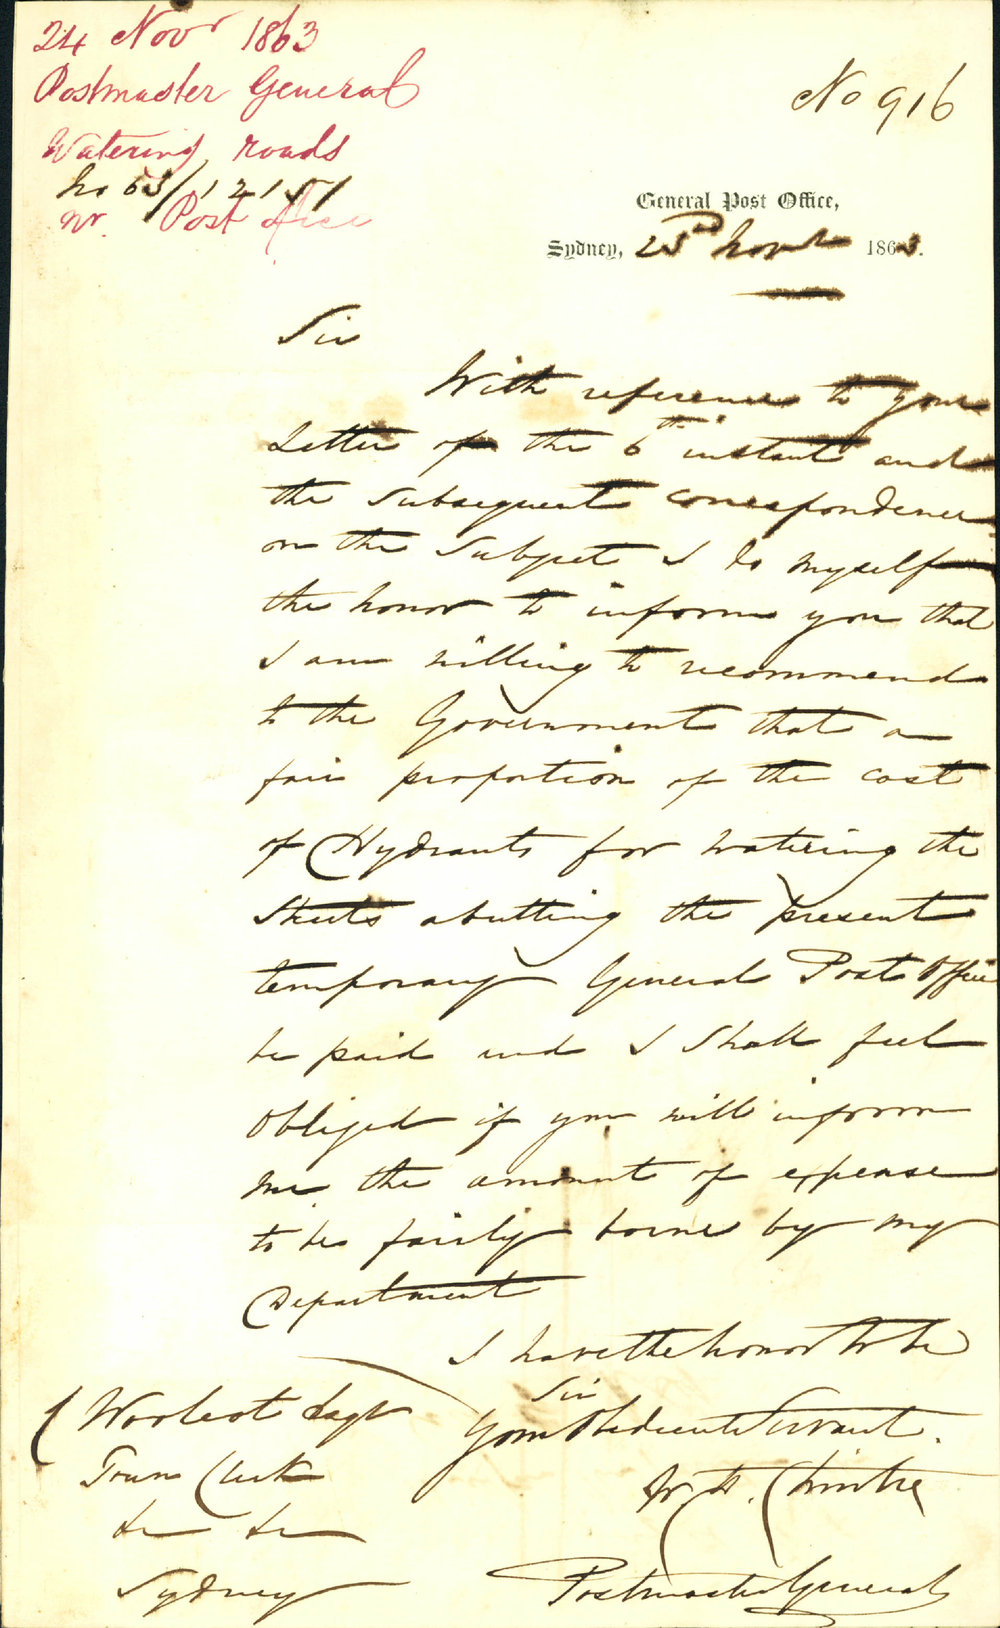 24 Novr 1863
Postmaster General
Watering roads
No 63/1215
nr. Post Office
No 916
General Post Office,
Sydney, 23rd Novr 1863.
Sir
With reference to your
Letter of the 6th instant and
the subsequent correspondence
on the Subject I do myself
the honor to inform you that
I am willing to recommend
to the Government that a
fair proportion of the cost
of Hydrants for watering the
Streets abutting the present
temporary General Post Office
be paid and I shall feel
obliged if you will inform
me the amount of expense
to be fairly borne by my
Department
I have the honor to be
Sir
Your Obedient Servant.
W. H. Christie
Postmaster General
Woolcott Esqr
Town Clerk
&c &c
Sydney